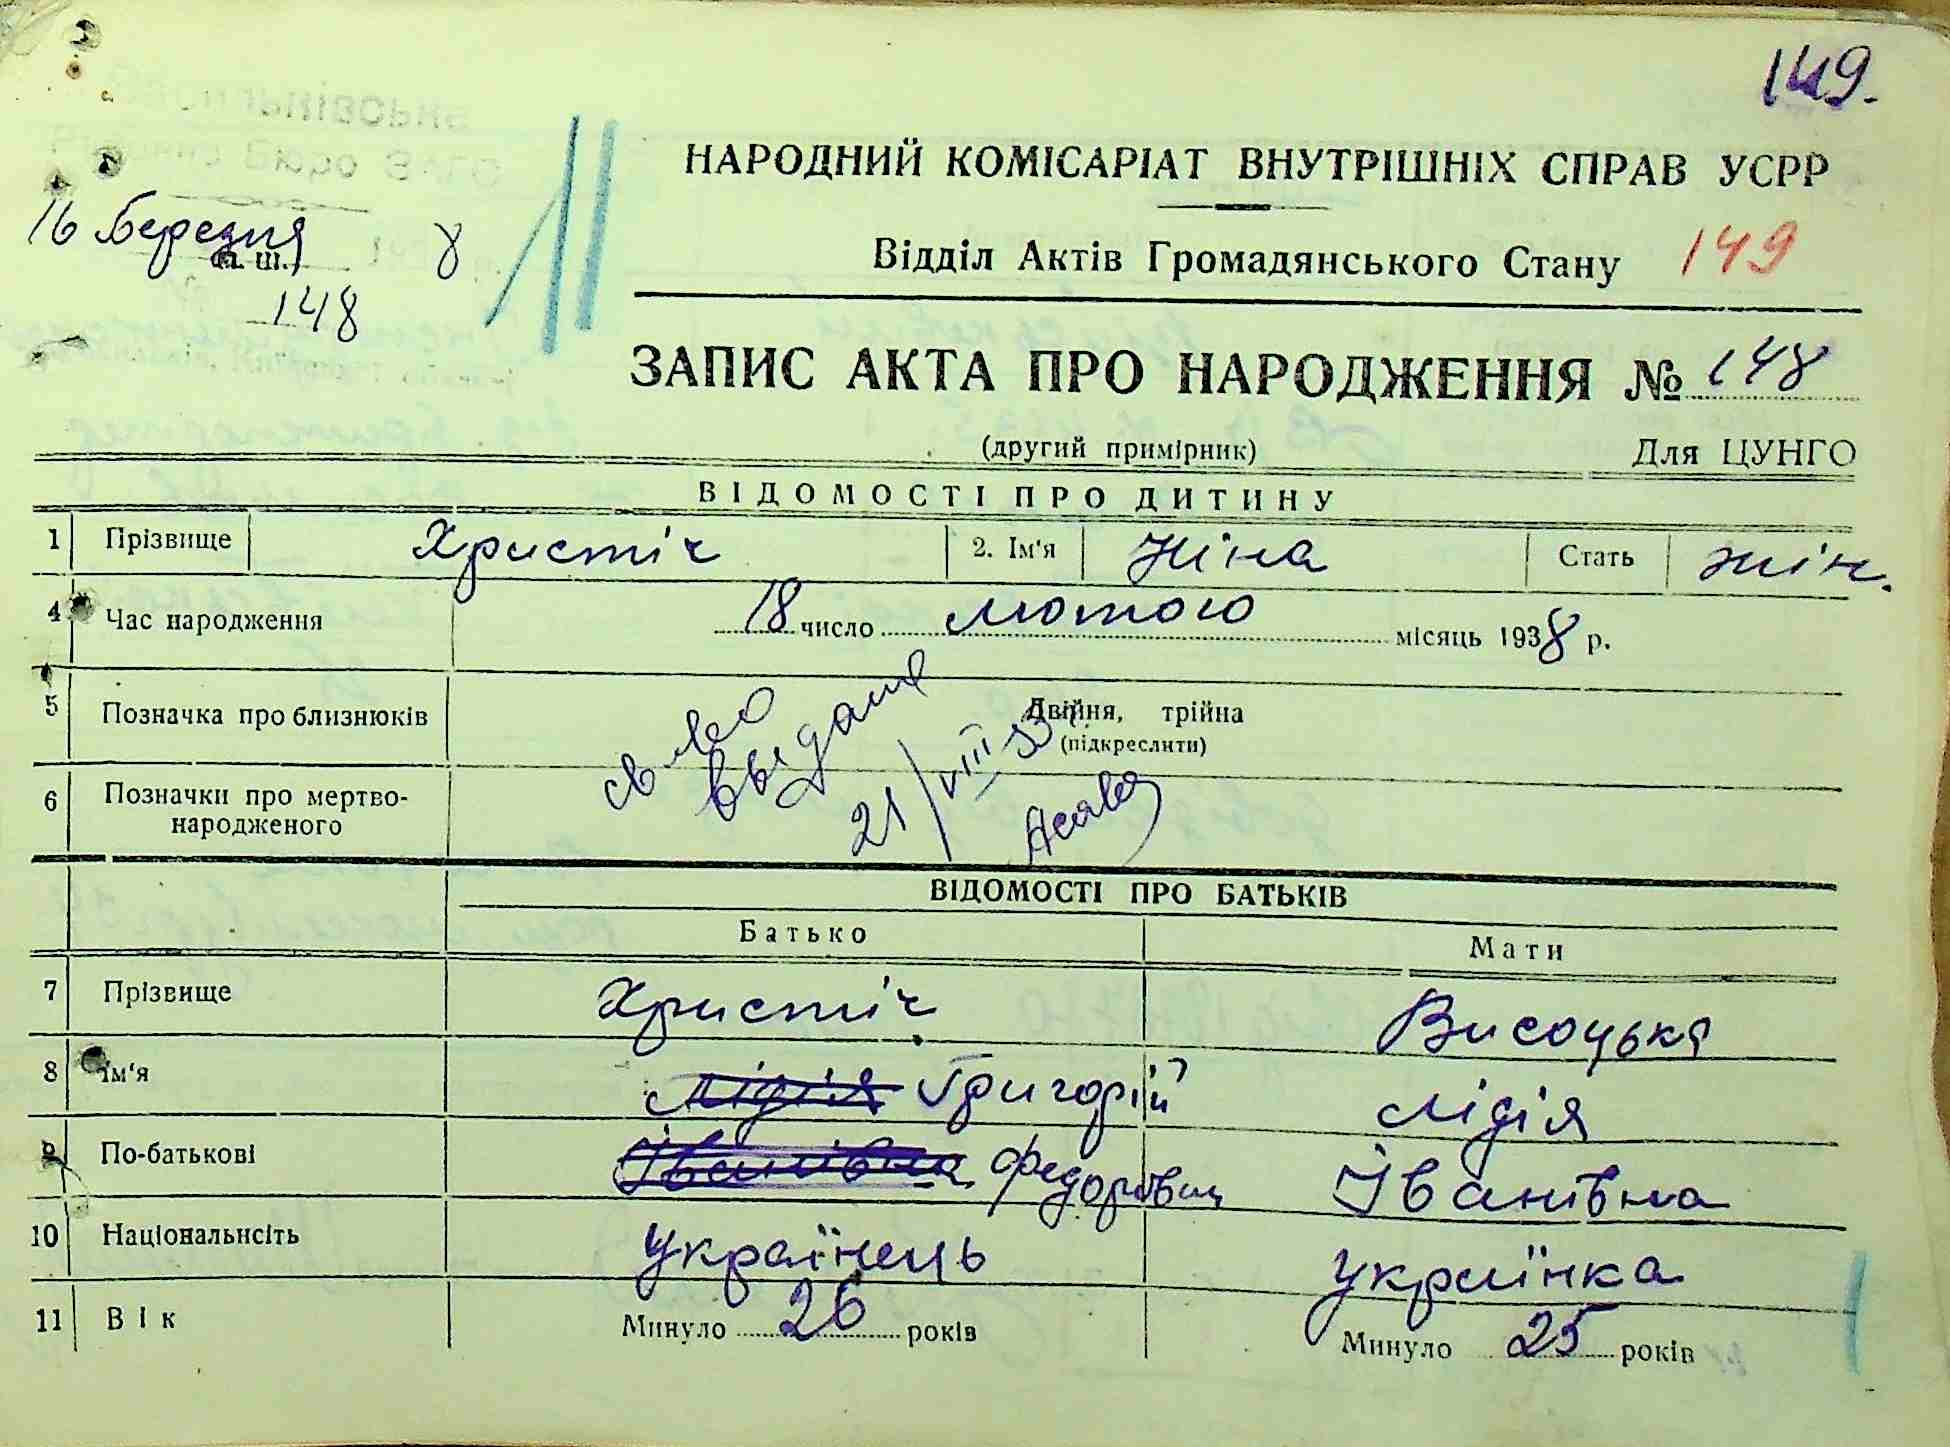 149.
НАРОДНИЙ КОМІСАРІАТ ВНУТРІШНІХ СПРАВ УСРР
16 березня 8
148
Відділ Актів Громадянського Стану 149
ЗАПИС АКТА ПРО НАРОДЖЕННЯ № 148
(другий примірник) Для ЦУНГО
ВІДОМОСТІ ПРО ДИТИНУ
1 Прізвище Христіч 2. Ім'я Ніна Стать жін.
4 Час народження 18 число лютого місяць 1938 р.
5 Позначка про близнюків Двійня, трійна
(підкреслити)
6 Позначки про мертво-
народженого
св во
выдано
21/VIII 53
ВІДОМОСТІ ПРО БАТЬКІВ
Батько Мати
7 Прізвище Христіч Висоцька
8 Ім'я Лідія Григорій Лідія
9 По-батькові Іванівна Федорович Іванівна
10 Національнсіть Українець Українка
11 Вік Минуло 26 років Минуло 25 років